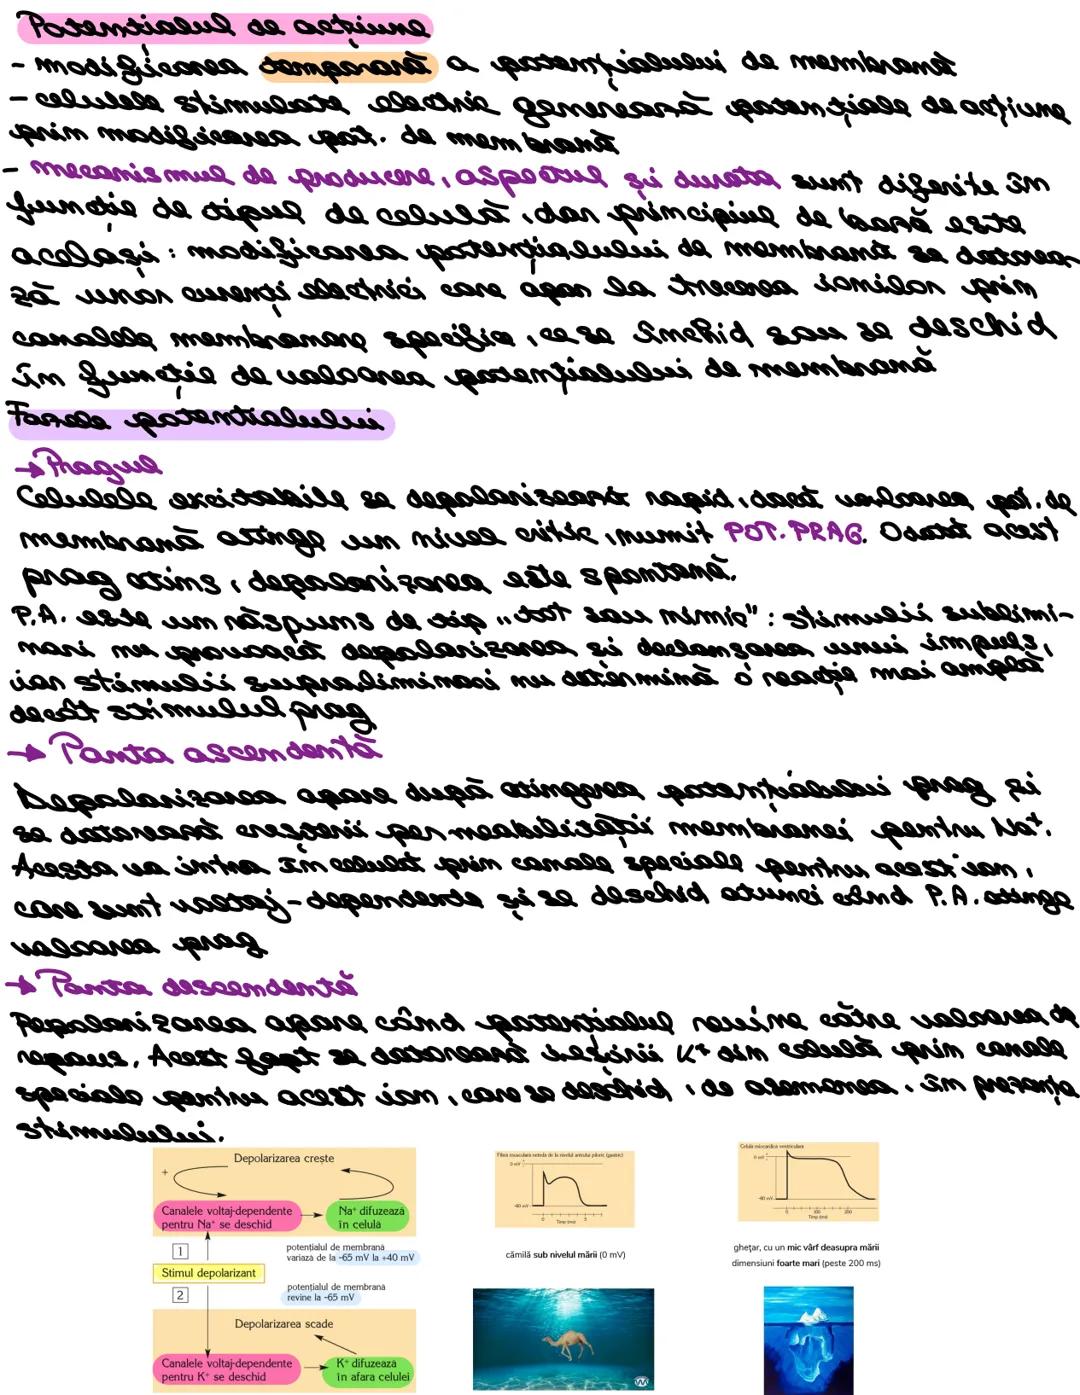 Potențialul de acțiune
- modificarea temporară a potențialului de membrană
- celulele stimulate electric generează potențiale de acțiune
prin modificarea pot. de membrană
- mecanismul de producere, aspectul și durata sunt diferite în
funcție de tipul de celulă, dar principiul de bază este
același: modificarea potențialului de membrană se datorea-
ză unor curenți electrici care apar la trecerea ionilor prin
canalele membranare specifice, ce se închid sau se deschid
în funcție de valoarea potențialului de membrană
Fazele potențialului
→ Pragul
Celulele excitabile se depolarizează rapid, dacă valoarea pot. de
membrană atinge un nivel critic, numit POT. PRAG. Odată acest
prag atins, depolarizarea este spontană.
P.A. este un răspuns de tip „tot sau nimic": stimulii sublimi-
nari nu provoacă depolarizarea și declanșarea unui impuls,
iar stimulii supraliminari nu determină o reacție mai amplă
decât stimulul prag
→ Panta ascendentă
Depolarizarea apare după atingerea potențialului prag și
se datorează creșterii permeabilității membranei pentru Na⁺.
Acesta va intra în celulă prin canale speciale pentru acest ion,
care sunt voltaj-dependente și se deschid atunci când P.A. atinge
valoarea prag
→ Panta descendentă
Repolarizarea apare când potențialul revine către valoarea de
repaus. Acest fapt se datorează ieșirii K⁺ din celulă prin canale
speciale pentru acest ion, care se deschid, de asemenea, în prezența
stimulului.
Depolarizarea crește
+
Canalele voltaj-dependente
pentru Na⁺ se deschid
Na⁺ difuzează
în celulă
1
potențialul de membrană
variază de la -65 mV la +40 mV
Stimul depolarizant
2
potențialul de membrană
revine la -65 mV
Depolarizarea scade
Canalele voltaj-dependente
pentru K⁺ se deschid
K⁺ difuzează
în afara celulei
Fibră musculară netedă de la nivelul antrului piloric (gastric)
0 mV
Timp (ms)
cămilă sub nivelul mării (0 mV)
Celulă miocardică ventriculară
0 mV
0
100
200
Timp (ms)
ghețar, cu un mic vârf deasupra mării
dimensiuni foarte mari (peste 200 ms)